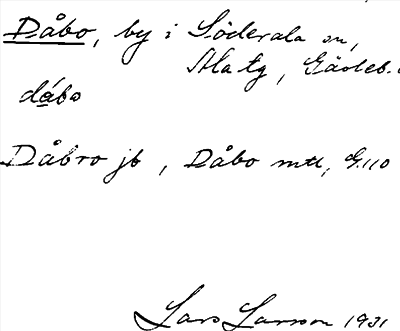 Dåbo, by i Söderala sn,
Ala tg, Gävleb.
dåbo
Dåbro jb, Dåbo mtl, G.110
Lars Larsson 1931